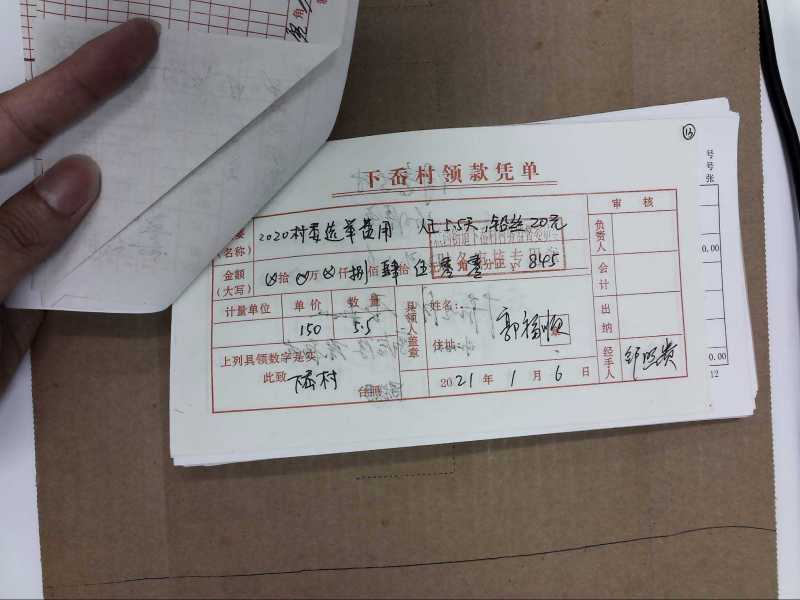 角
⑬
下岙村领款凭单
号
号
张
要
(名称)
2020村委选举费用 人工5.5天,铅丝20元
审核
负责人
金额
(大写)
⊗拾⊗万⊗仟捌佰肆拾伍元零角零分 ¥ 845
0.00
会计
计量单位 单价 数量
150 5.5
具领人盖章
姓名:
郭福顺
体址:
出纳
上列具领数字是实
此致 下岙村 台照
2021年1月6日
经手人
0.00
12